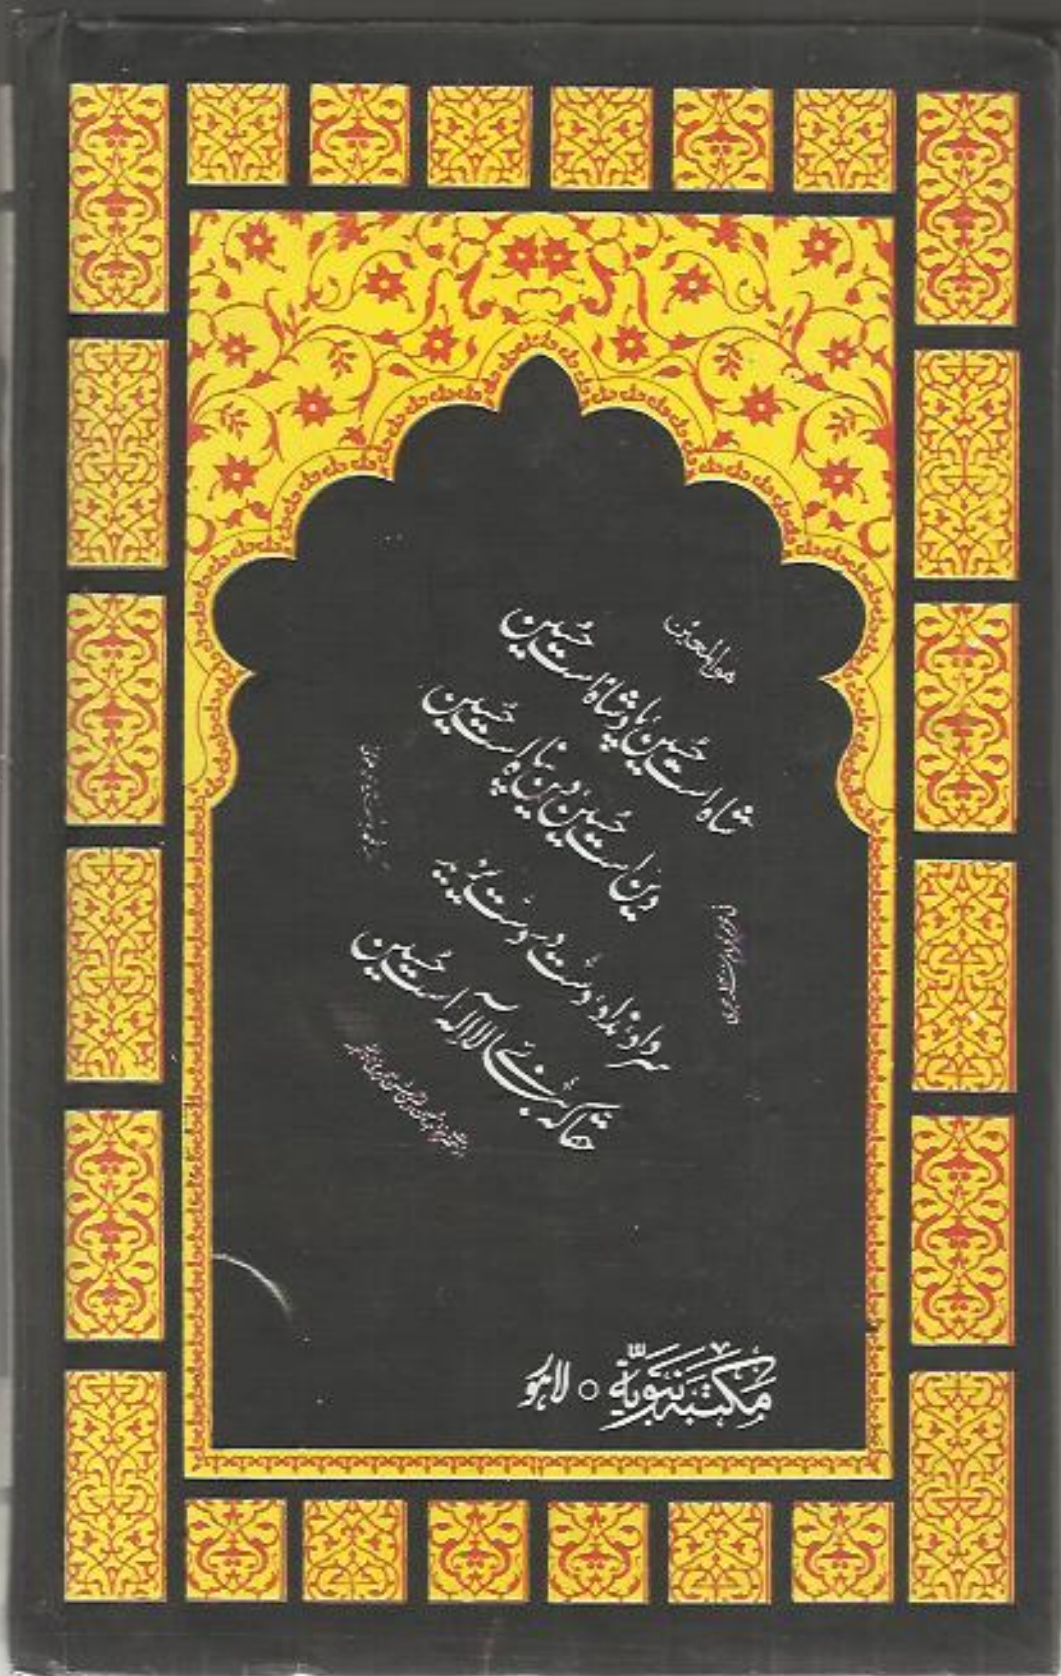 هوالمعین
شاہ است حسین پادشاہ است حسین
دین است حسین دین پناہ است حسین
سر داد نداد دست در دست یزید
حقا کہ بنائے لا الٰہ است حسین
مکتبہ نبویہ ○ لاہور